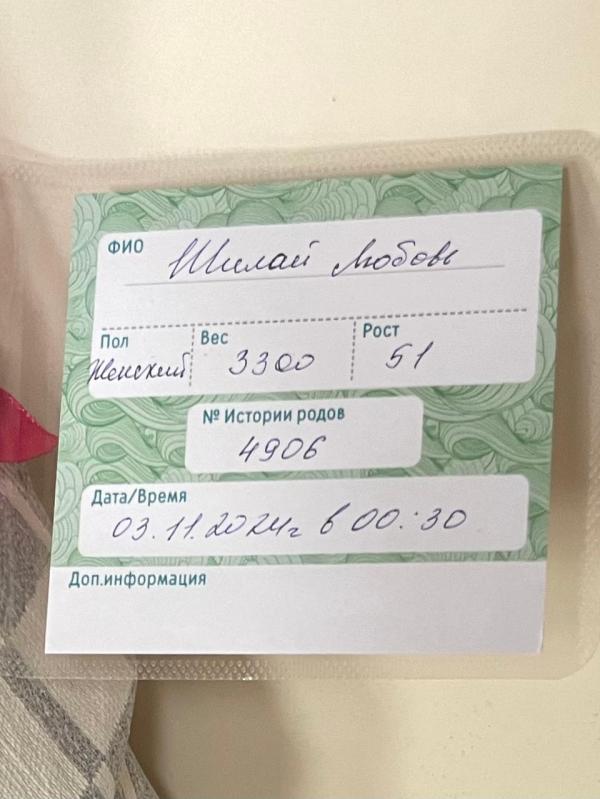 ФИО Шилай Любовь
Пол Вес Рост
Женский 3300 51
№ Истории родов
4906
Дата/Время
03.11.2024г в 00:30
Доп.информация